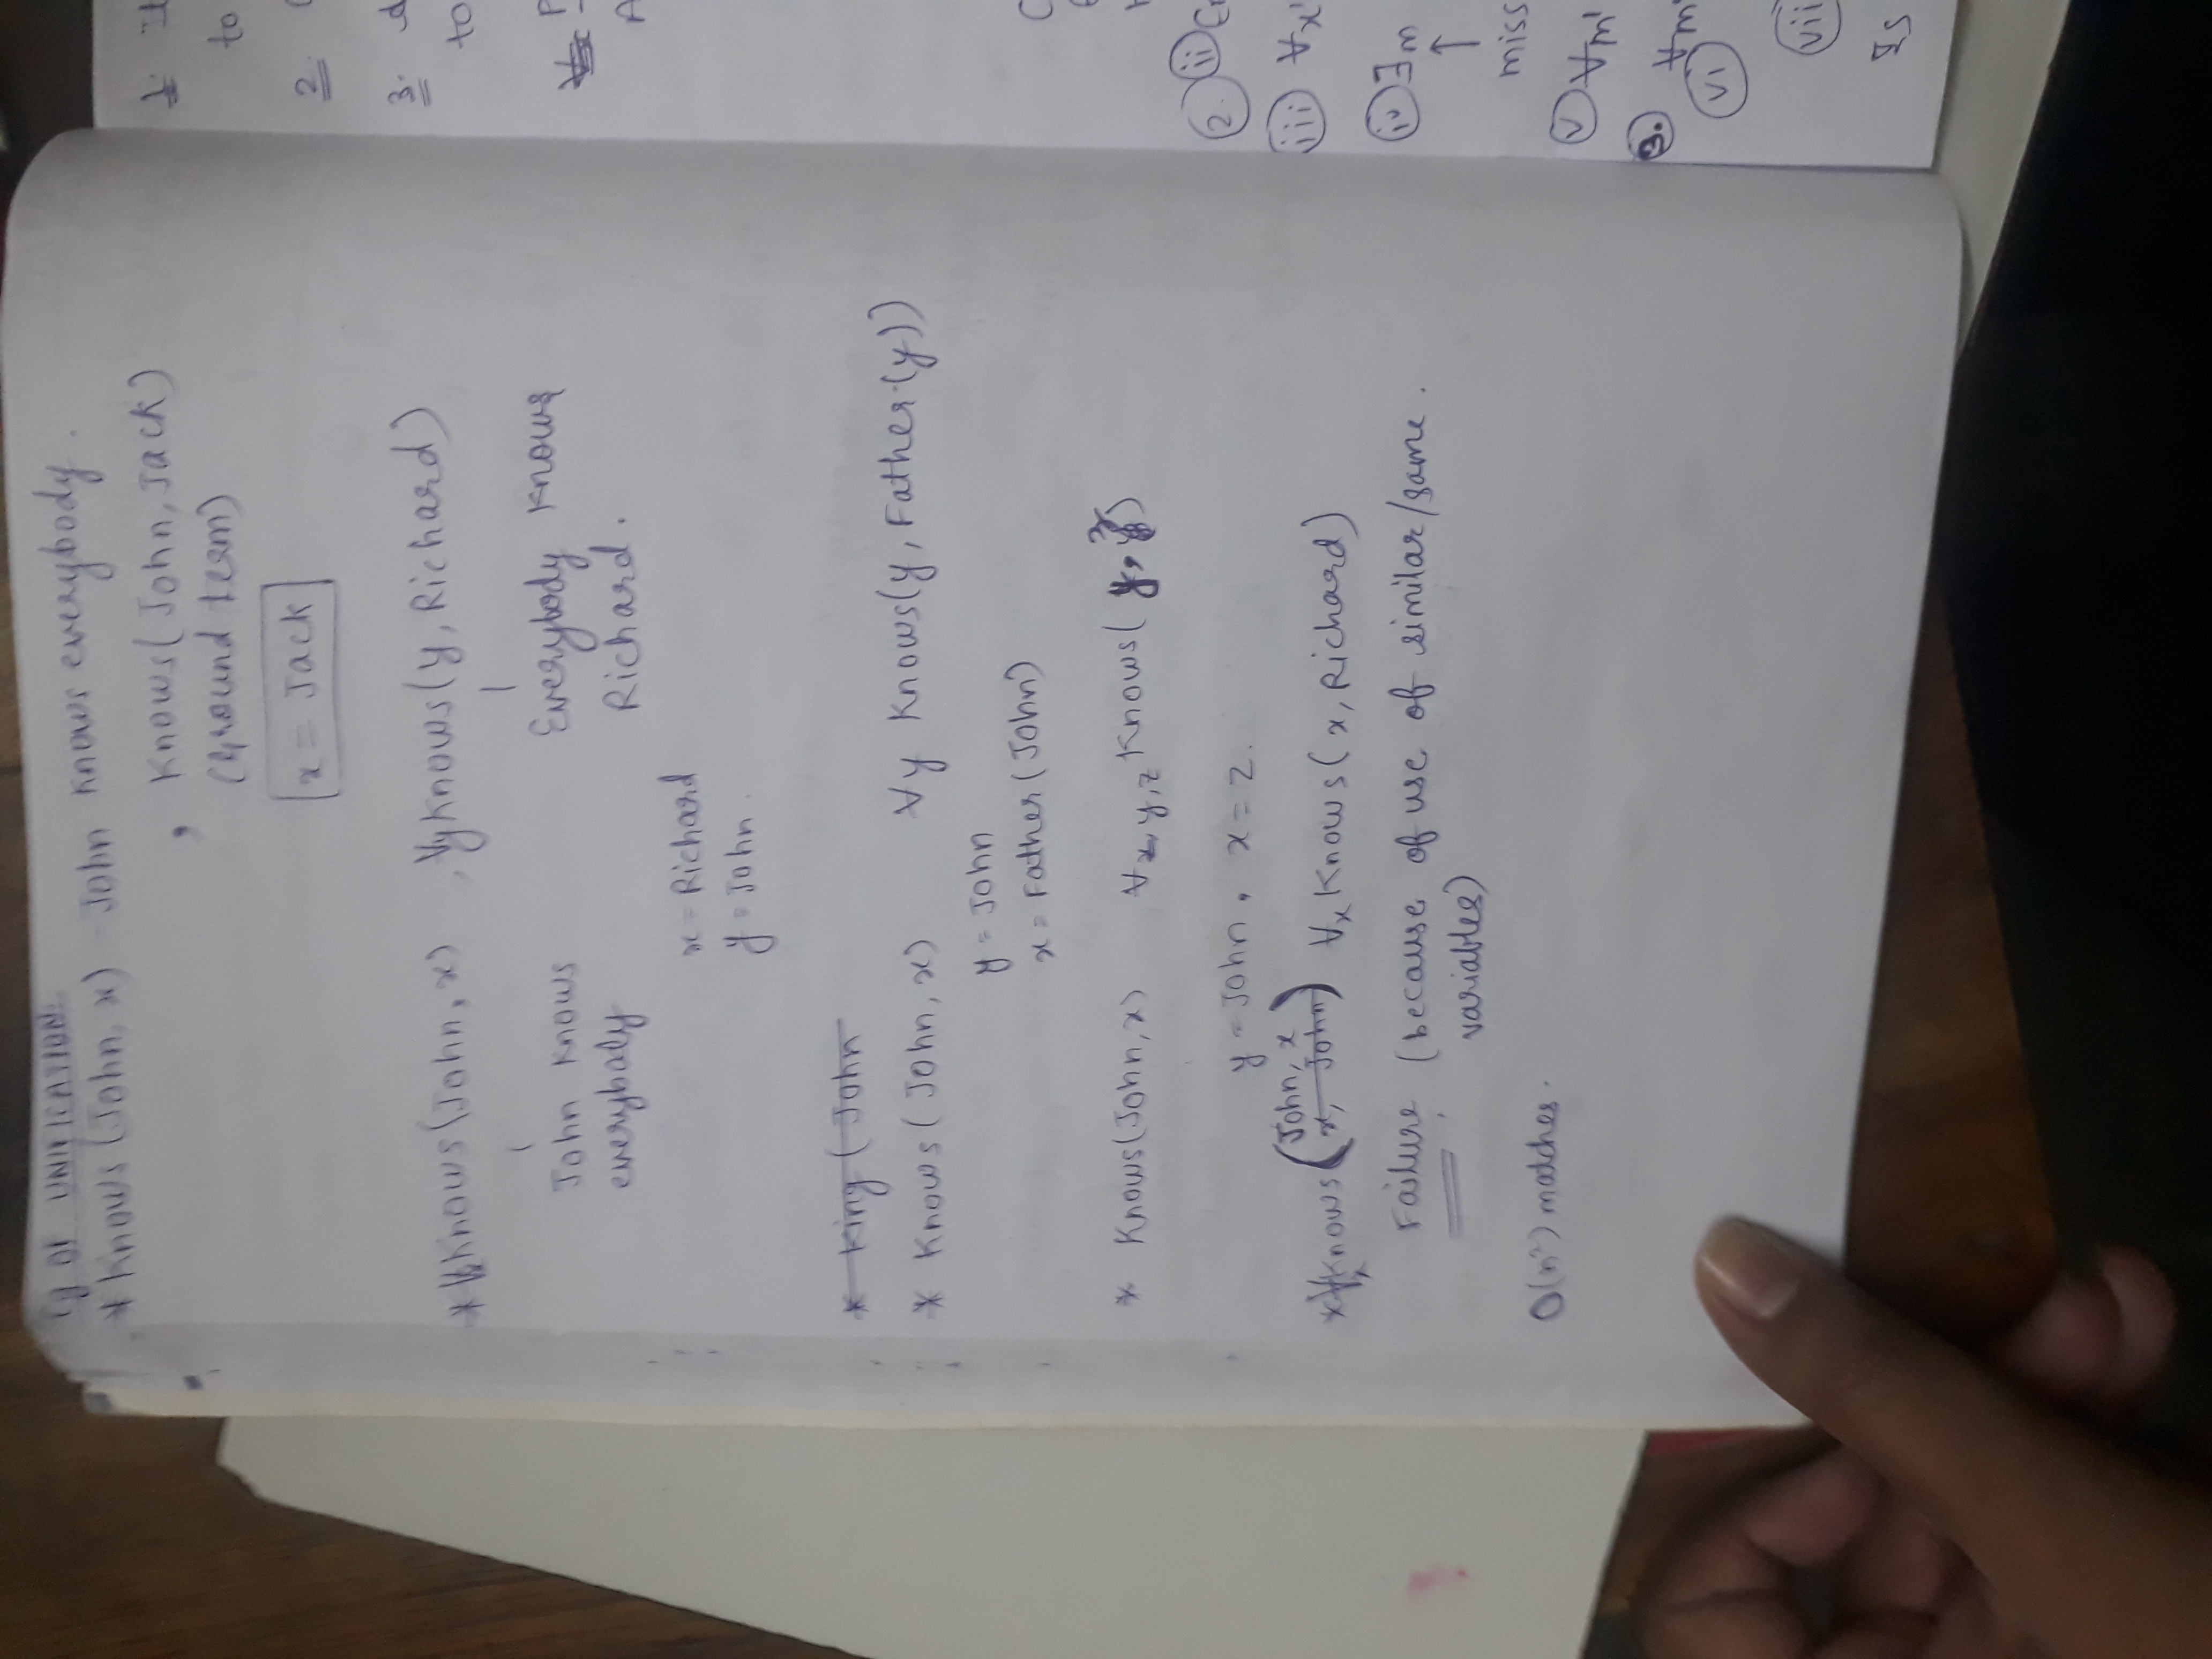 UNIFICATION.
* Knows (John, x) - John knows everybody.
, Knows (John, Jack)
(Ground term)
x = Jack
* ∀x Knows (John, x) , ∀y Knows (y, Richard)
John knows everybody
Everybody knows Richard.
x = Richard
y = John.
* King (John
* Knows (John, x) ∀y Knows(y, Father(y))
y = John
x = Father (John)
* Knows(John, x) ∀x,y,z Knows( y, z)
y = John, x = z.
* ∀x Knows (x, John) John, x ∀x Knows (x, Richard)
Failure (because of use of similar/same
variables)
O(n²) matches.
1.
to
2.
3. d
to
2. ii
iii ∀x
iv ∃m
miss
v ∀m
3.
vi ∀m
vii
Is